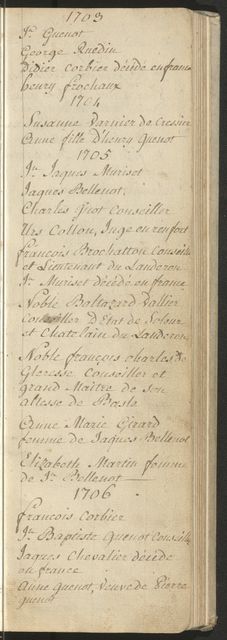 1703
Jn. Quenot
George Ruedin
Didier Corbier décédé en france
henry frochaux
1704
Susanne Varnier de Cressier
Anne fille d'henry Quenot
1705
Jn. Jaques Muriset
Jaques Bellenot,
Charles Guot Conseiller
Urs Collon, Juge en renfort
françois Brochatton Conseille
et Lieutenant du Landeron
Jn. Muriset décédé en france
Noble Baltazard Vallier
Conseiller d'Etat de Soleur
et Chatelain du Landeron
Noble françois Charles de
Gleresse Conseiller et
grand Maître de son
altesse de Basle
Anne Marie Girard
femme de Jaques Bellenot
Elizabeth Martin femme
de Jn. Bellenot
1706
françois Corbier
Jn. Baptiste Quenot Conseille
Jaques Chevalier décédé
en france
Anne Quenot, Veuve de Pierre
quenot